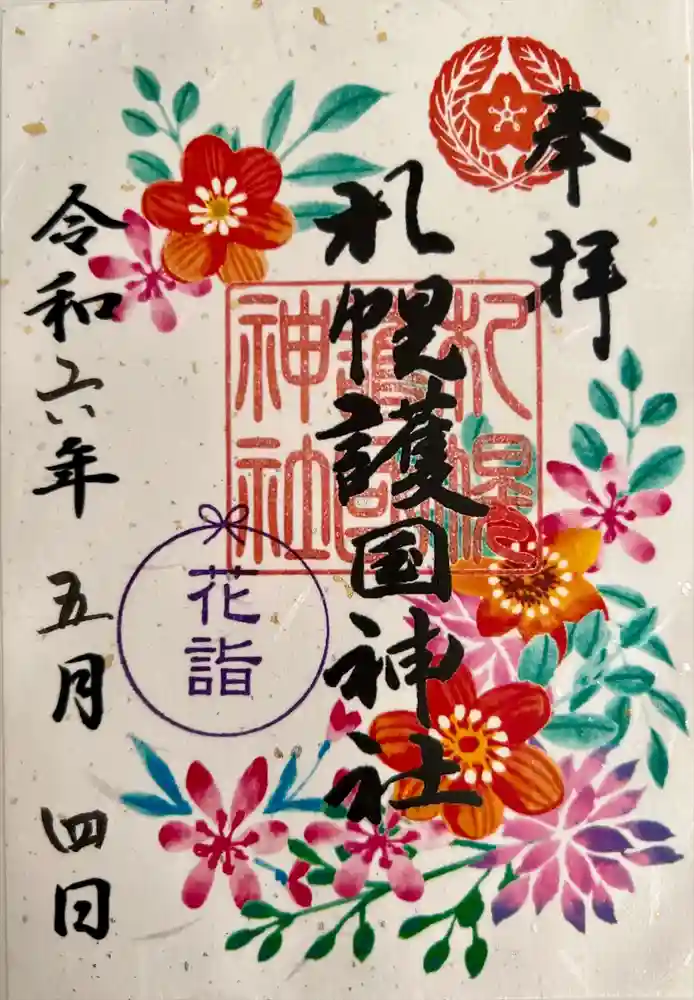 奉拝
札幌護国神社
札幌護国神社
花詣
令和六年 五月 四日